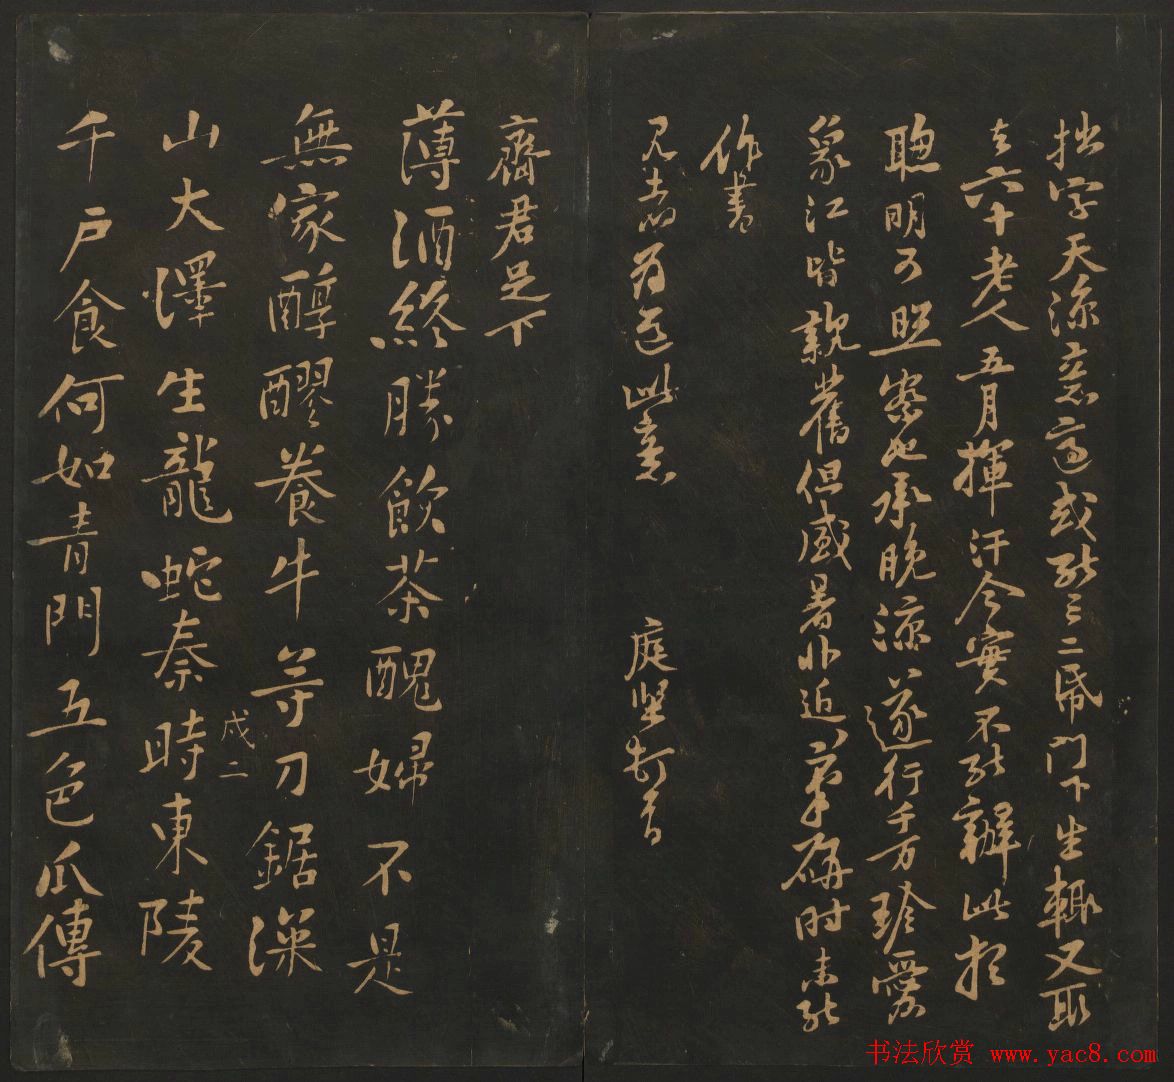 拙字天涼意適或能三二紙門下生輒又取
去六十老人五月揮汗今實不能辦此想
聰明可照察也承晚涼遂行千万珍愛
象江皆親舊但盛暑非近筆研時未能
作書
見者為道此意 庭堅頓首
齋君足下
薄酒終勝飲茶醜婦不是
無家醇醪養牛等刀鋸深
山大澤生龍蛇秦時東陵
千戶食何如青門五色瓜傳
戍二
书法欣赏 www.yac8.com